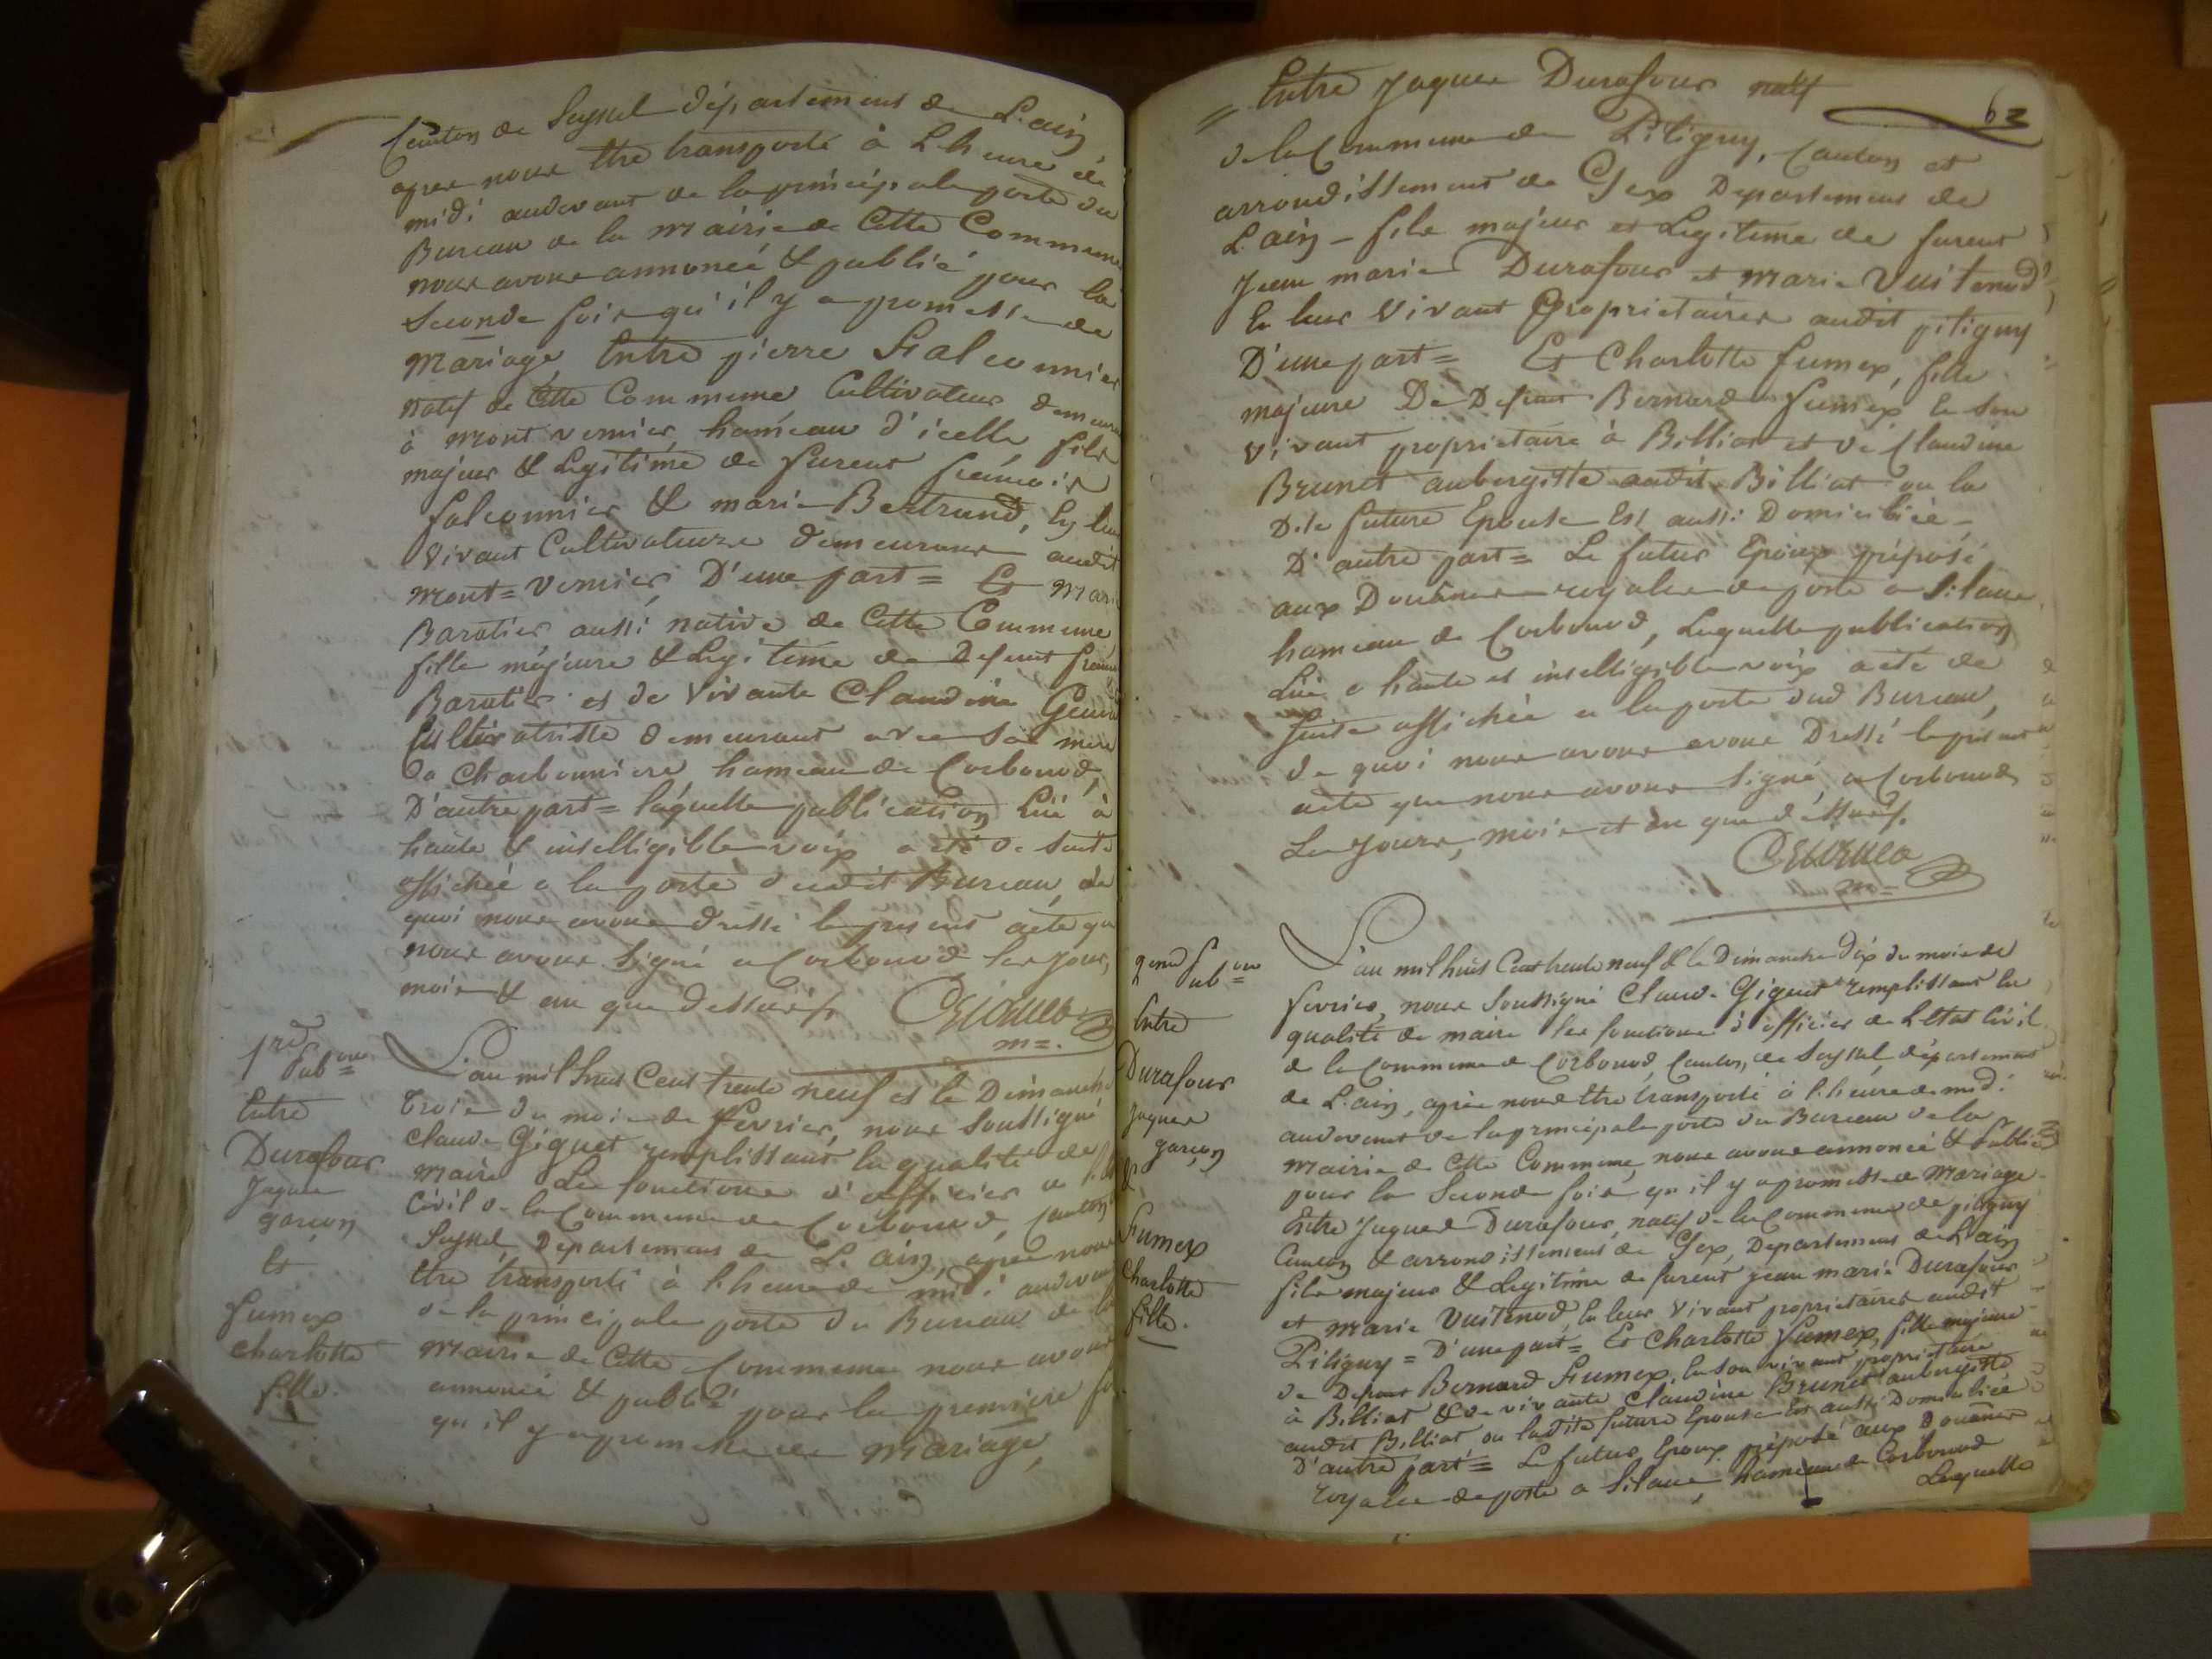 Canton de Seyssel département de L'ain
apres nous être transporté à L'heure de
midi audevant de la principale porte du
Bureau de la mairie de Cette Commune
nous avons annoncé & publié pour la
Seconde fois qu'il y a promesse de
Mariage, Entre pierre Falconnier
natif de Cette Commune Cultivateur demeurant
à mont vernier, hameau d'icelle, fils
majeur & Légitime de fureut francois
falconnier & marie Bertrand, En leur
Vivant Cultivateurs demeurans audit
Mont=Vernier, D'une part = Et Marie
Baratier aussi native de Cette Commune,
fille majeure & Legitime de Defunt
Baratier et de vivante Claudine
Cultivatrisse demeurant avec sa mere
à Charbonniere, hameau de Corbonod,
D'autre part = laquelle publication Lüe à
haute & intelligible voix a été de suite
affichée a la porte dudit Bureau, de
quoi nous avons dressé le présent acte que
nous avons Signé a Corbonod les jour,
mois & an que dessus
m=.
1re Pubon
Entre
Durafour
Jaques
garçon
Et
Fumex
Charlotte
fille.
L'an mil huit Cent trente neuf et le Dimanche
trois du mois de février, nous Soussigné
Claude Giguet remplissant la qualité de
maire Les fonctions d'officier de l'Etat
Civil de la Commune de Corbonod, Canton de
Seyssel, Département de L'ain, après nous
être transporté à L'heure de midi audevant
de la principale porte du Bureau de la
Mairie de Cette Commune nous avons
annoncé & publié pour la première fois
qu'il y a promesse de Mariage,
62
= Entre Jaques Durafour natif
de la Commune de Pitigny, Canton et
arrondissement de Gex Departement de
L'ain - fils majeur et Legitime de fureut
Jean marie Durafour et Marie Vuitenod
En leur Vivant Propriétaires audit pitigny
D'une part = Et Charlotte fumex, fille
majeure De Defunt Bernard Fumex En son
Vivant propriétaire à Billiat et de Claudine
Brunet aubergiste audit Billiat ou la
Dite future Epouse Est aussi Domiciliée -
D'autre part = Le futur Epoux préposé
aux Douanes royales de poste a Silans
hameau de Corbonod, Laquelle publication
Lüe a haute et intelligible voix a été de
suite affichée a la porte dud Bureau,
de quoi nous avons avons Dressé le présent
acte que nous avons Signé, a Corbonod
Les Jours, mois et an que dessus.
m=
2eme Pubon
Entre
Durafour
Jaques
garçon
&
Fumex
Charlotte
fille.
L'an mil huit Cent trente neuf & le Dimanche Dix du mois de
février, nous Soussigné Claude Giguet remplissant la
qualité de maire les fonctions d'officier de L'Etat Civil
de la Commune de Corbonod, Canton de Seyssel, département
de L'ain, après nous être transporté à L'heure de midi
audevant de la principale porte du Bureau de la
Mairie de Cette Commune, nous avons annoncé & Publié
pour la Seconde fois qu'il y a promesse de Mariage
Entre Jaques Durafour, natif de la Commune de pitigny
Canton & arrondissement de Gex, Departement de L'ain
fils majeur & Legitime de fureut jean marie Durafour
et Marie Vuitenod, En leur Vivant propriétaires audit
Pitigny = D'une part = Et Charlotte Fumex, fille majeure
de Defunt Bernard Fumex, En son vivant propriétaire
à Billiat & de vivante Claudine Brunet aubergiste
audit Billiat, ou ladite future Epouse Est aussi Domiciliée
D'autre part = Le futur Epoux préposé aux Douanes
royales de poste a Silans, hameau de Corbonod
Laquelle